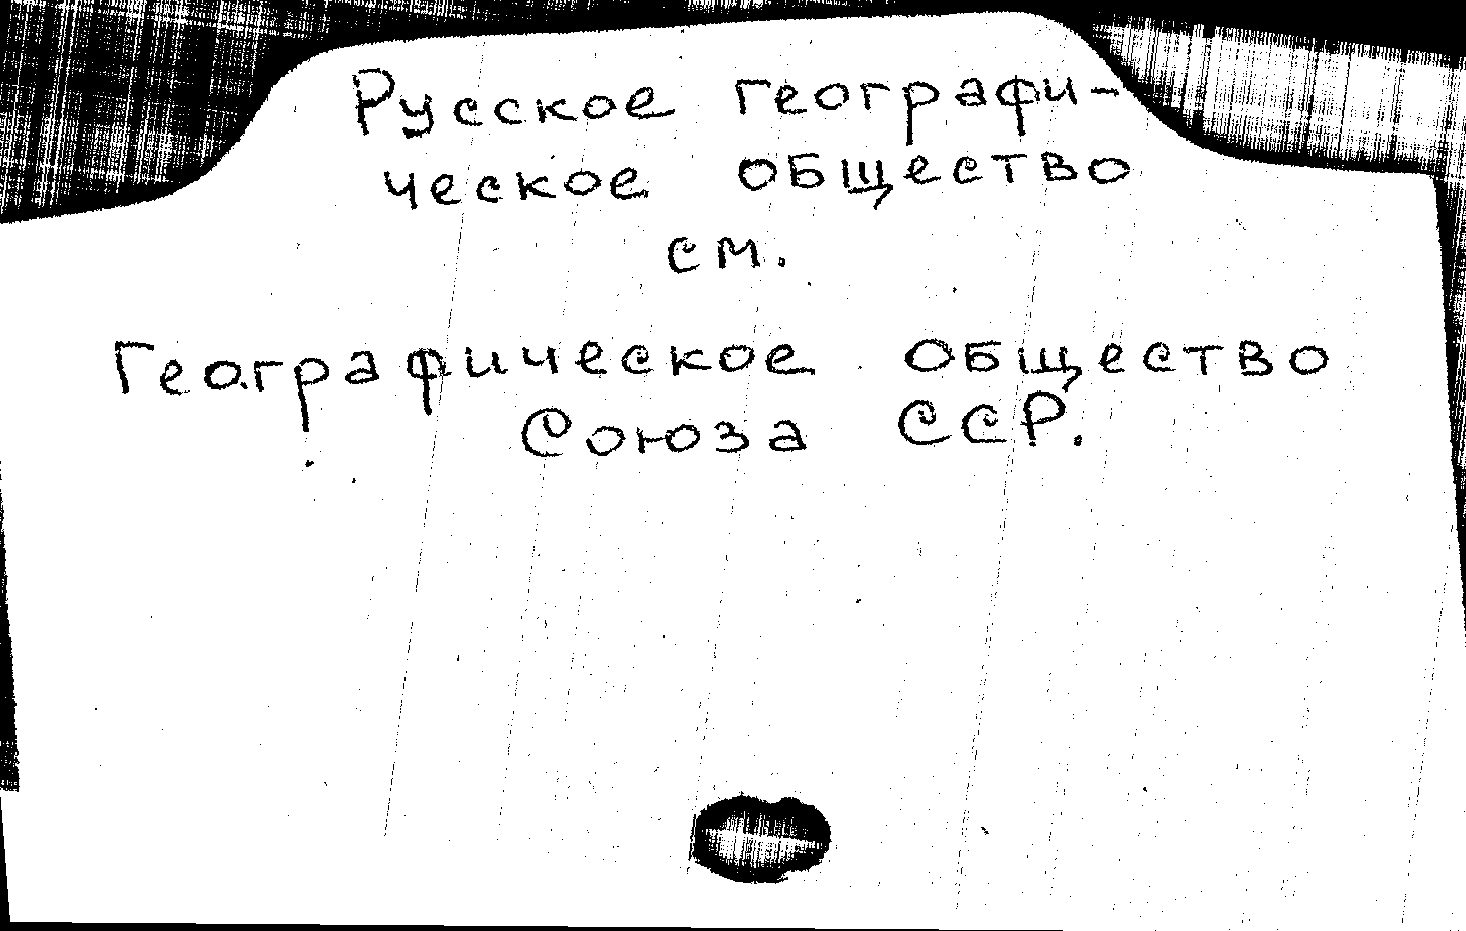 Русское географи-
ческое общество
см.
Географическое общество
Союза ССР.